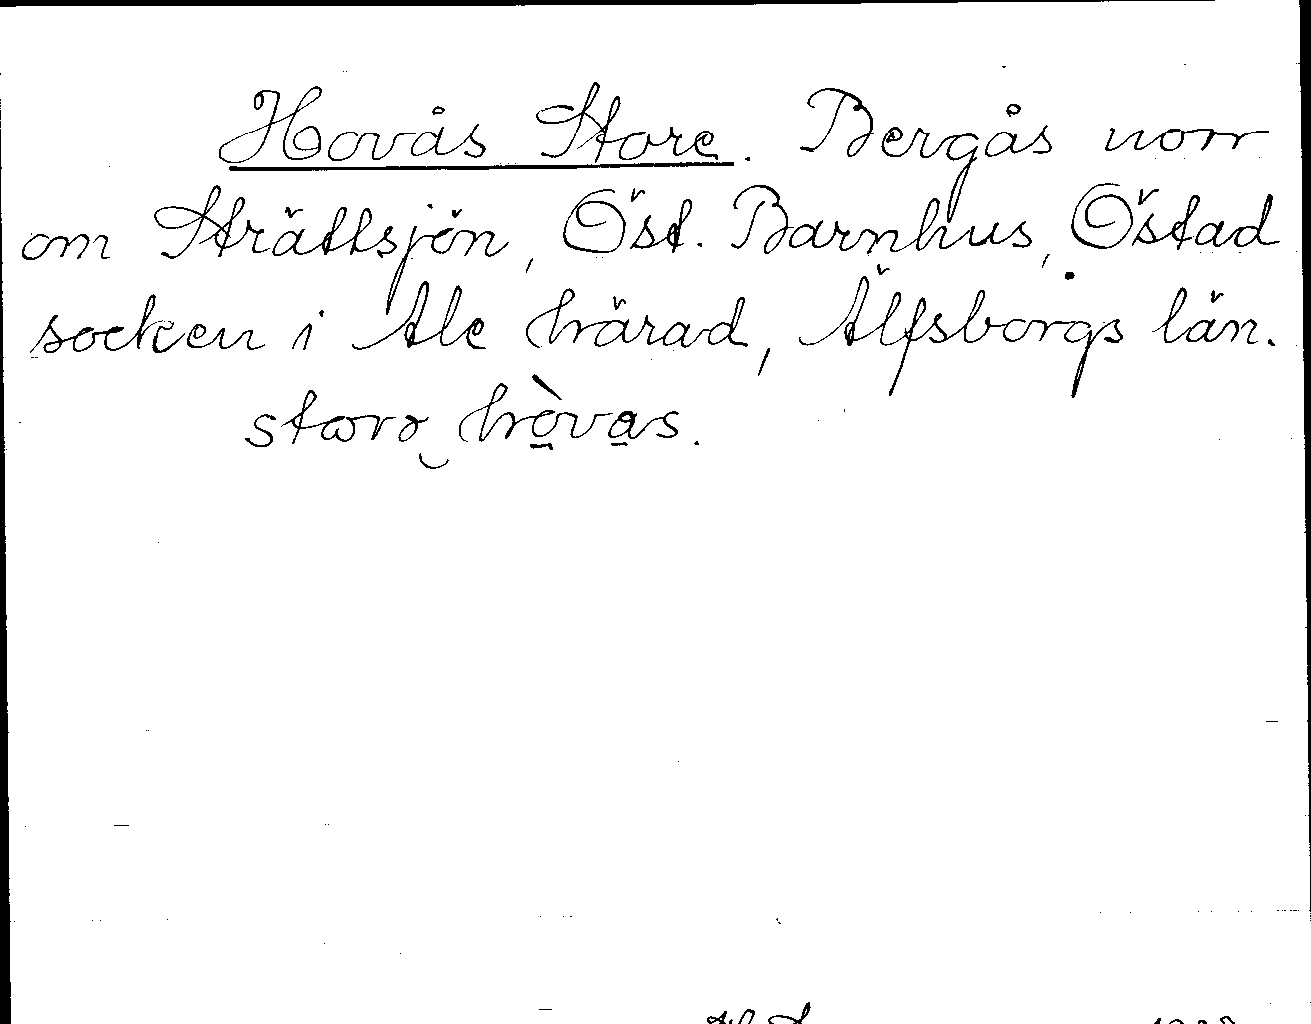 Hovås Store. Bergås norr
om Strättsjön, Öst. Barnhus, Östad
socken i Ale härad, Älfsborgs län.
hòvas.